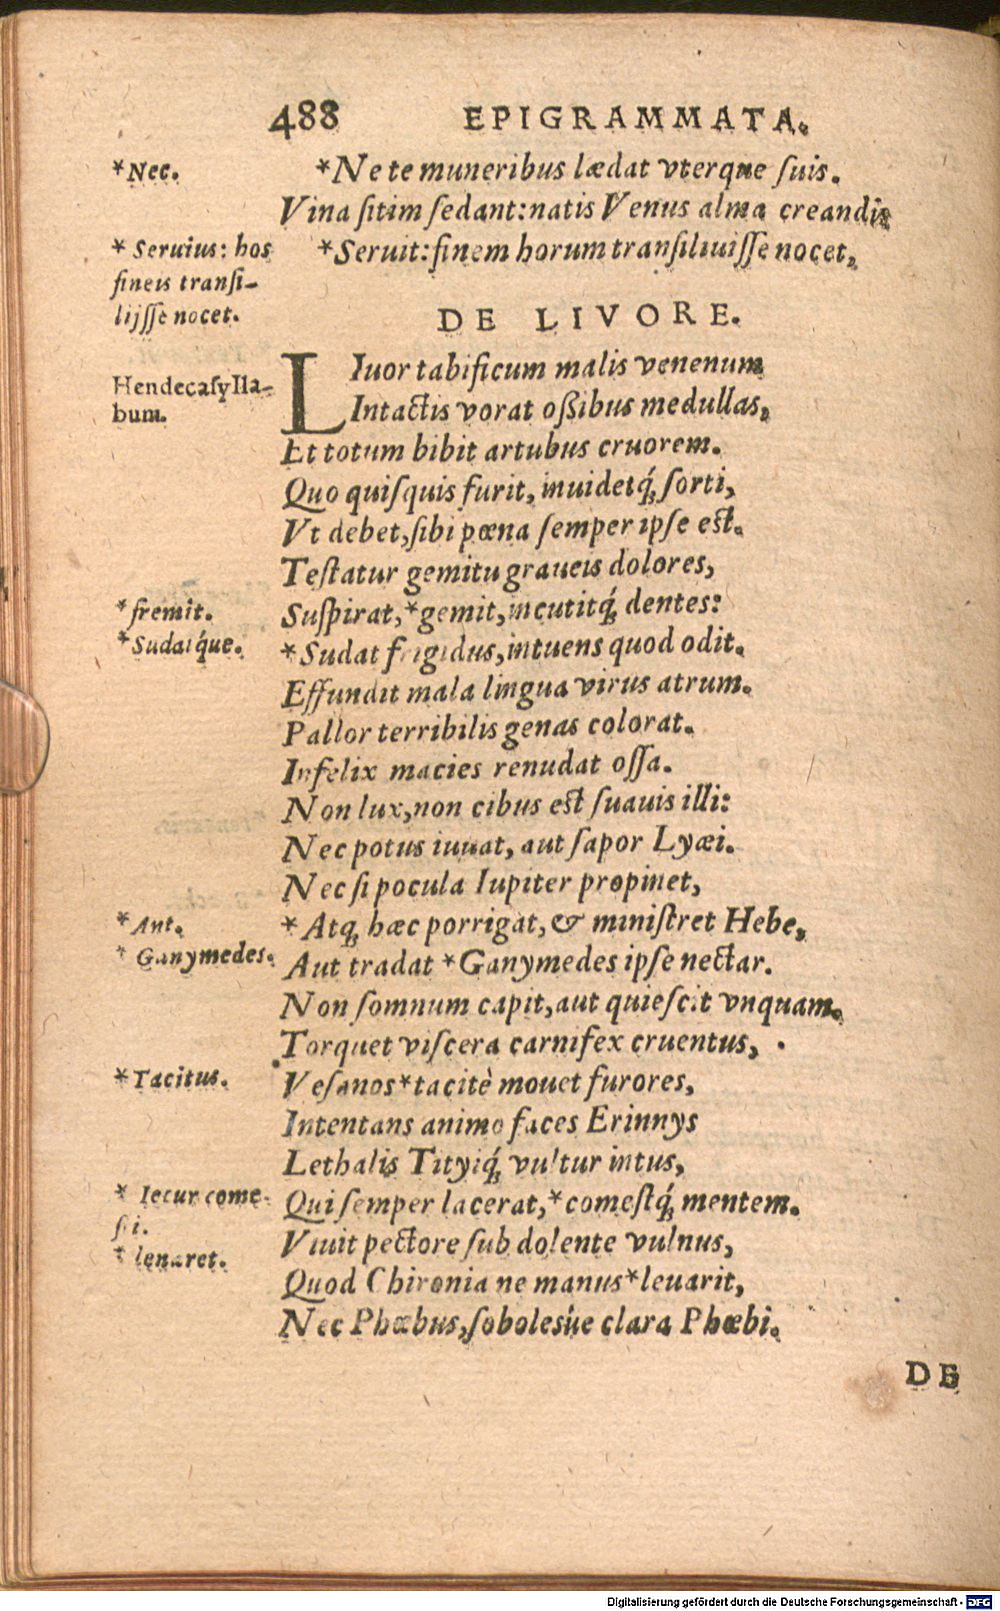 488 EPIGRAMMATA.
*Nec.
*Ne te muneribus lædat vterque ſuis.
Vina ſitim ſedant: natis Venus alma creandis
*Seruius: hos
fineis tranſi-
lijſſe nocet.
*Seruit: finem horum tranſiliuiſſe nocet.
DE LIVORE.
Hendecaſylla-
bum.
LIuor tabificum malis venenum
Intactis vorat oßibus medullas,
Et totum bibit artubus cruorem.
Quo quiſquis furit, inuidetq́; ſorti,
Vt debet, ſibi pœna ſemper ipſe eſt.
Teſtatur gemitu graueis dolores,
*fremit.
Suſpirat, *gemit, incutitq́; dentes:
*Sudatq́ue.
*Sudat frigidus, intuens quod odit.
Effundit mala lingua virus atrum.
Pallor terribilis genas colorat.
Infelix macies renudat oſſa.
Non lux, non cibus eſt ſuauis illi:
Nec potus iuuat, aut ſapor Lyæi.
Nec ſi pocula Iupiter propinet,
*Ant.
*Atq; hæc porrigat, & miniſtret Hebe,
*Ganymedes.
Aut tradat *Ganymedes ipſe nectar.
Non ſomnum capit, aut quieſcit vnquam.
Torquet viſcera carnifex cruentus,
*Tacitus.
Veſanos *tacitè mouet furores,
Intentans animo faces Erinnys
Lethalis Tityiq́; vultur intus,
*Iecur come-
ſti.
Qui ſemper lacerat, *comeſtq́; mentem.
Viuit pectore ſub dolente vulnus,
*leuaret.
Quod Chironia ne manus *leuarit,
Nec Phœbus, ſobolesúe clara Phœbi.
DE
Digitalisierung gefördert durch die Deutsche Forschungsgemeinschaft - DFG